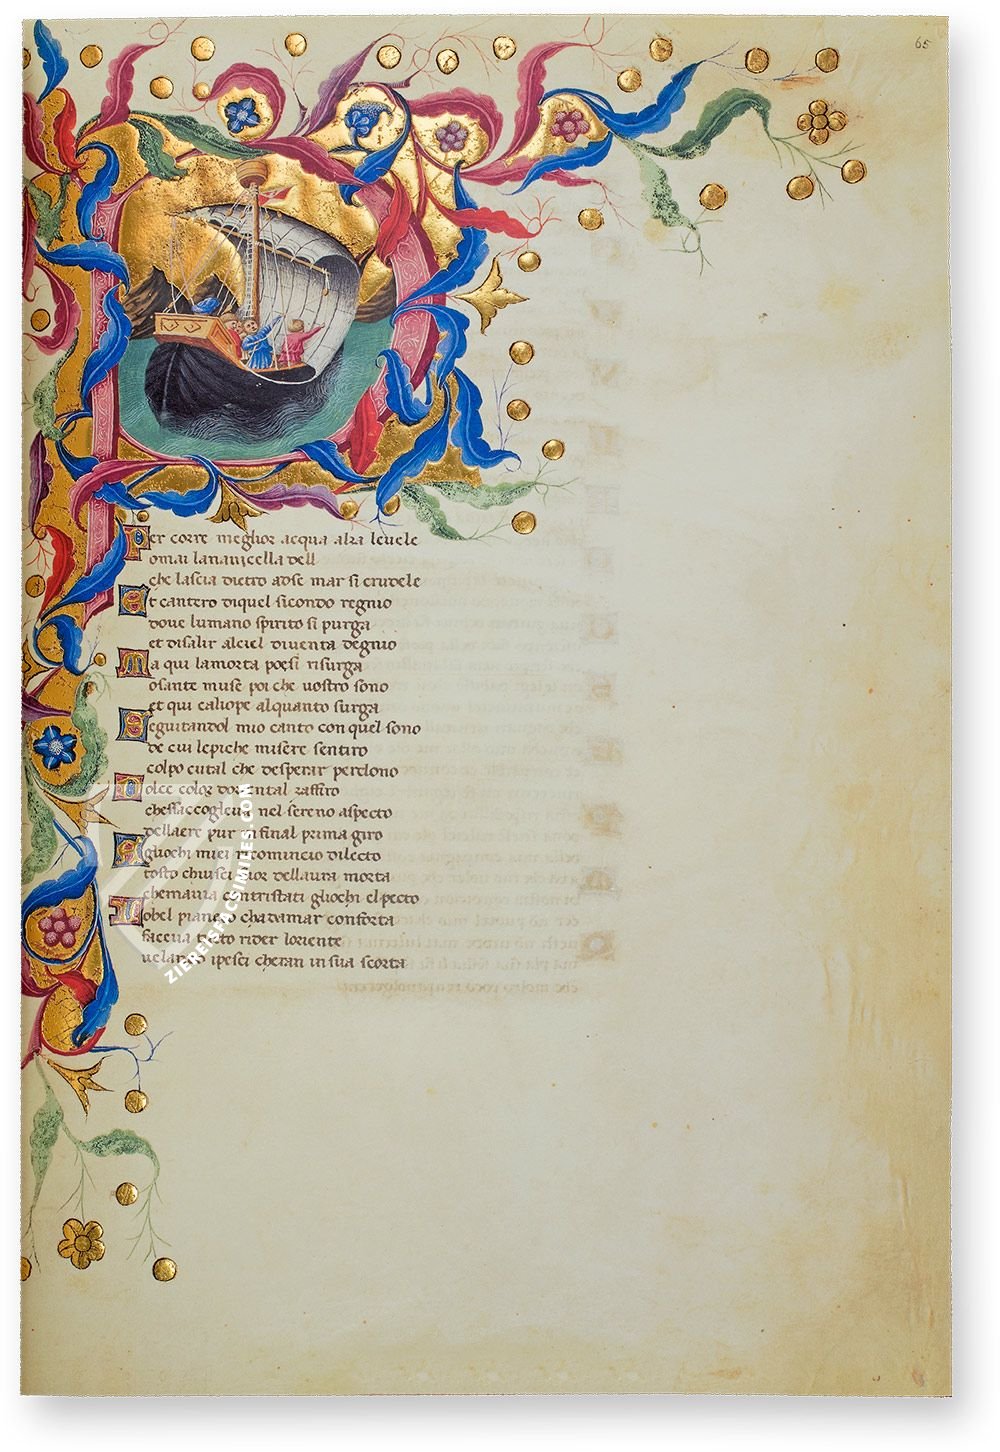 65
Per corre meglior acqua alza leuele
omai lanauicella dell
che lascia dietro adse mar si crudele
Et cantero diquel sicondo regnio
doue lumano spirito si purga
et disalir alciel diuenta degnio
Ma qui lamorta poesi risurga
osante muse poi che uostro sono
et qui caliope alquanto surga
Seguitandol mio canto con quel sono
de cui lepiche misere sentiro
colpo cutal che desperar perdono
Dolce color doriental zaffiro
chessaccoglieua nel sereno aspecto
dellaere pur infinal prima giro
Agliochi miei ricomincio dilecto
tosto chiusci fuor dellaura morta
chemauia contristati gliochi elpecto
Lobel pianeto chadamar conforta
faceua tutto rider loriente
uelando ipesci cheran in sua scorta
ZIEREISFACSIMILES.COM